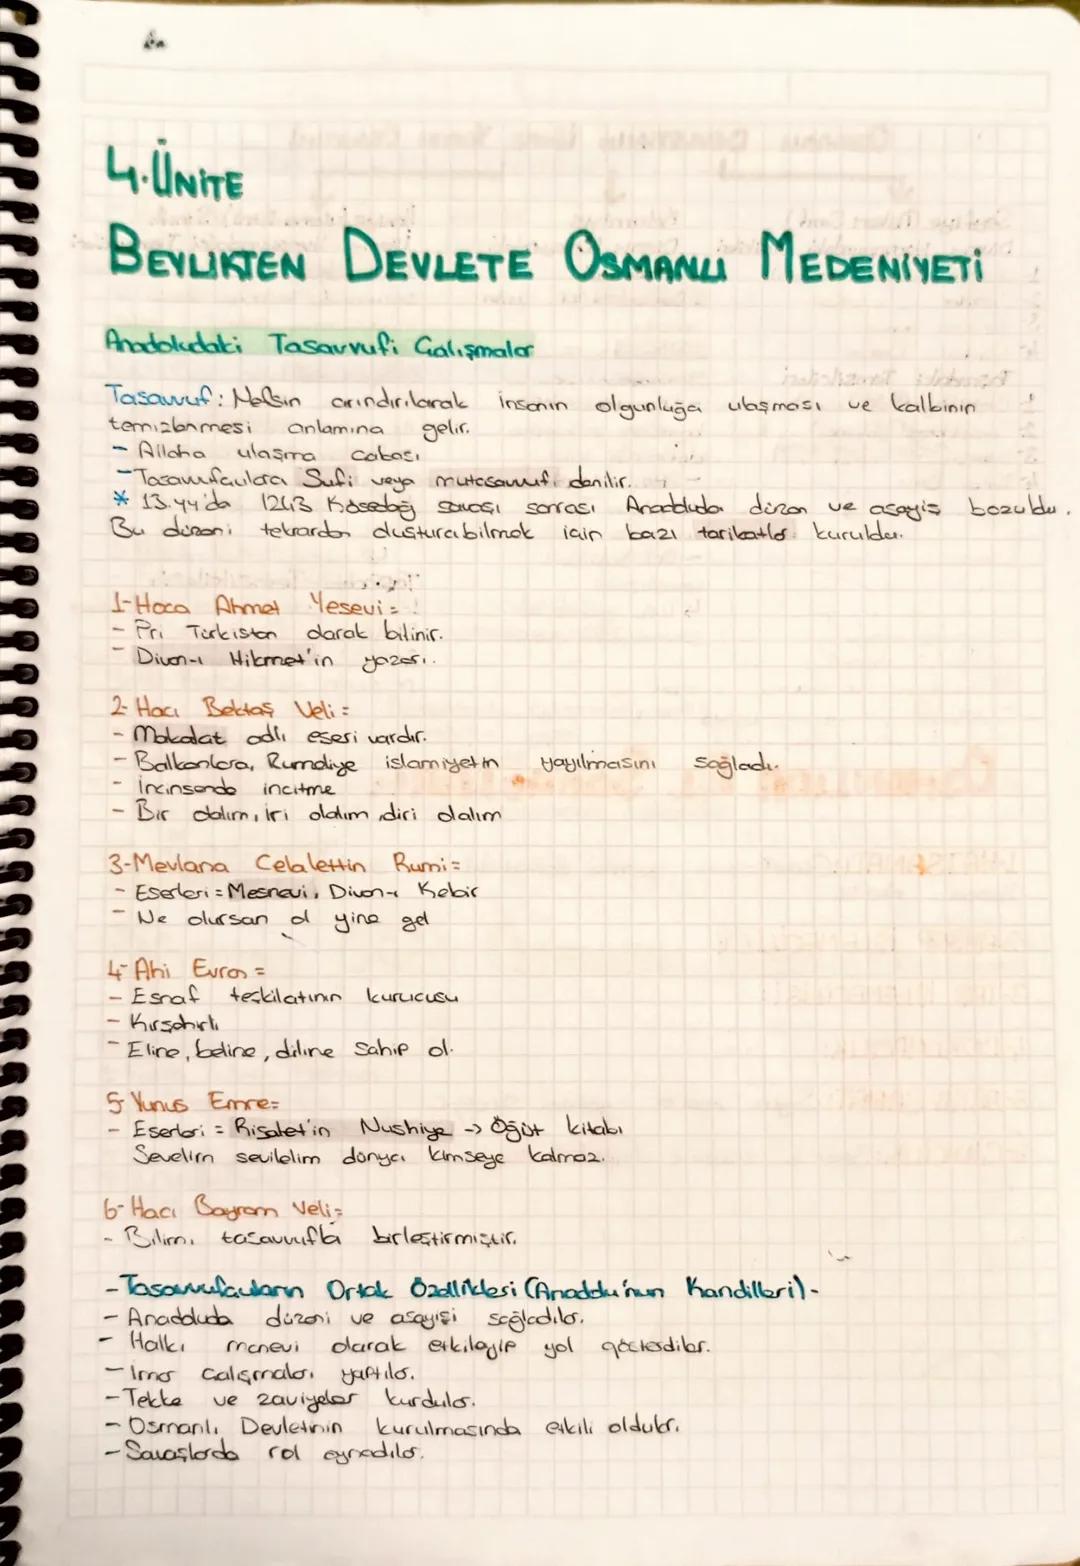 4.ÜNİTE
BEYLİKTEN DEVLETE OSMANLI MEDENİYETİ
Anadoludaki Tasavvufi Çalışmalar
Tasavvuf: Nefsin arındırılarak insanın olgunluğa ulaşması ve kalbinin
temizlenmesi anlamına gelir.
- Allaha ulaşma çabası
- Tasavvufçulara Sufi veya mutasavvufi denilir.
* 13.yy'da 1243 Kösedağ savaşı sonrası Anadoluda düzen ve asayiş bozuldu.
Bu düzeni tekrardan oluşturabilmek için bazı tarikatlar kuruldu.
1-Hoca Ahmet Yesevi=
- Pri Türkistan olarak bilinir.
- Divan-ı Hikmet'in yazarı.
2- Hacı Bektaş Veli=
- Makalat adlı eseri vardır.
- Balkanlara, Rumeliye islamiyetin yayılmasını sağladı.
- İncinsende incitme
- Bir olalım, iri olalım, diri olalım
3-Mevlana Celalettin Rumi=
- Eserleri = Mesnevi, Divan-ı Kebir
- Ne olursan ol yine gel
4- Ahi Evran =
- Esnaf teşkilatının kurucusu
- Kırşehirli
- Eline, beline, diline sahip ol.
5- Yunus Emre=
- Eserleri = Risalet'in Nushiye -> Öğüt kitabı
Sevelim sevilelim dünya kimseye kalmaz.
6- Hacı Bayram Veli=
- Bilimi tasavvufla birleştirmiştir.
- Tasavvufçuların Ortak Özellikleri (Anadolu'nun Kandilleri) -
- Anadoluda düzeni ve asayişi sağladılar.
- Halkı manevi olarak etkileyip yol gösterdiler.
- İmar çalışmaları yaptılar.
- Tekke ve zaviyeler kurdular.
- Osmanlı Devletinin kurulmasında etkili oldular.
- Savaşlarda rol oynadılar.